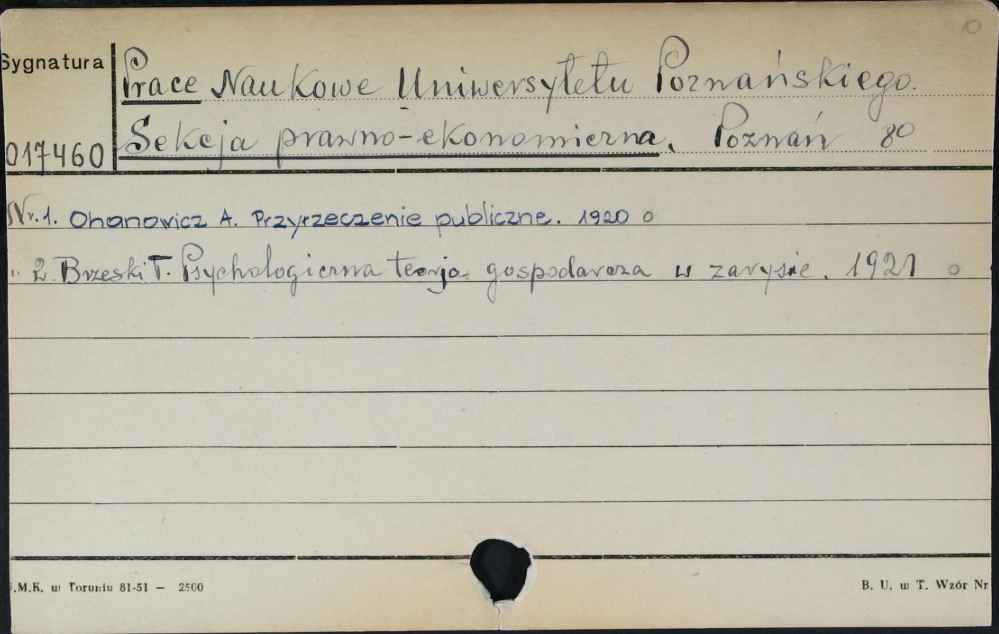 10
Sygnatura
Prace Naukowe Uniwersytetu Poznańskiego.
017460
Sekcja prawno-ekonomiczna. Poznań 8°
Nr. 1. Ohanowicz A. Przyrzeczenie publiczne. 1920 o
" 2. Brzeski T. Psychologiczna teorja gospodarcza w zarysie. 1921 o
.M.K. w Toruniu 81-51 — 2500
B. U. w T. Wzór Nr